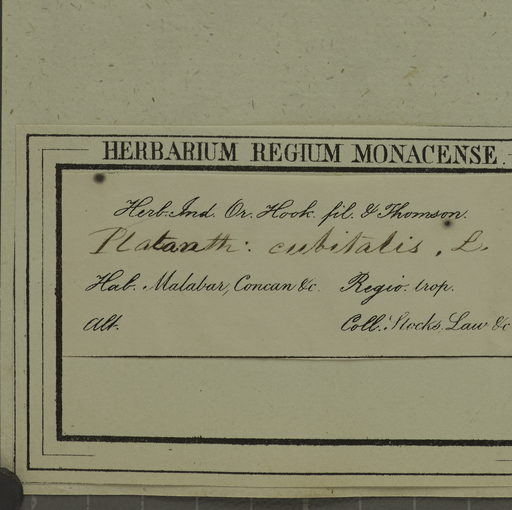 HERBARIUM REGIUM MONACENSE.
Herb. Ind. Or. Hook. fil. & Thomson.
Platanth: cubitalis, L.
Hab. Malabar, Concan &c. Regio. trop.
Alt. Coll. Stocks, Law &c